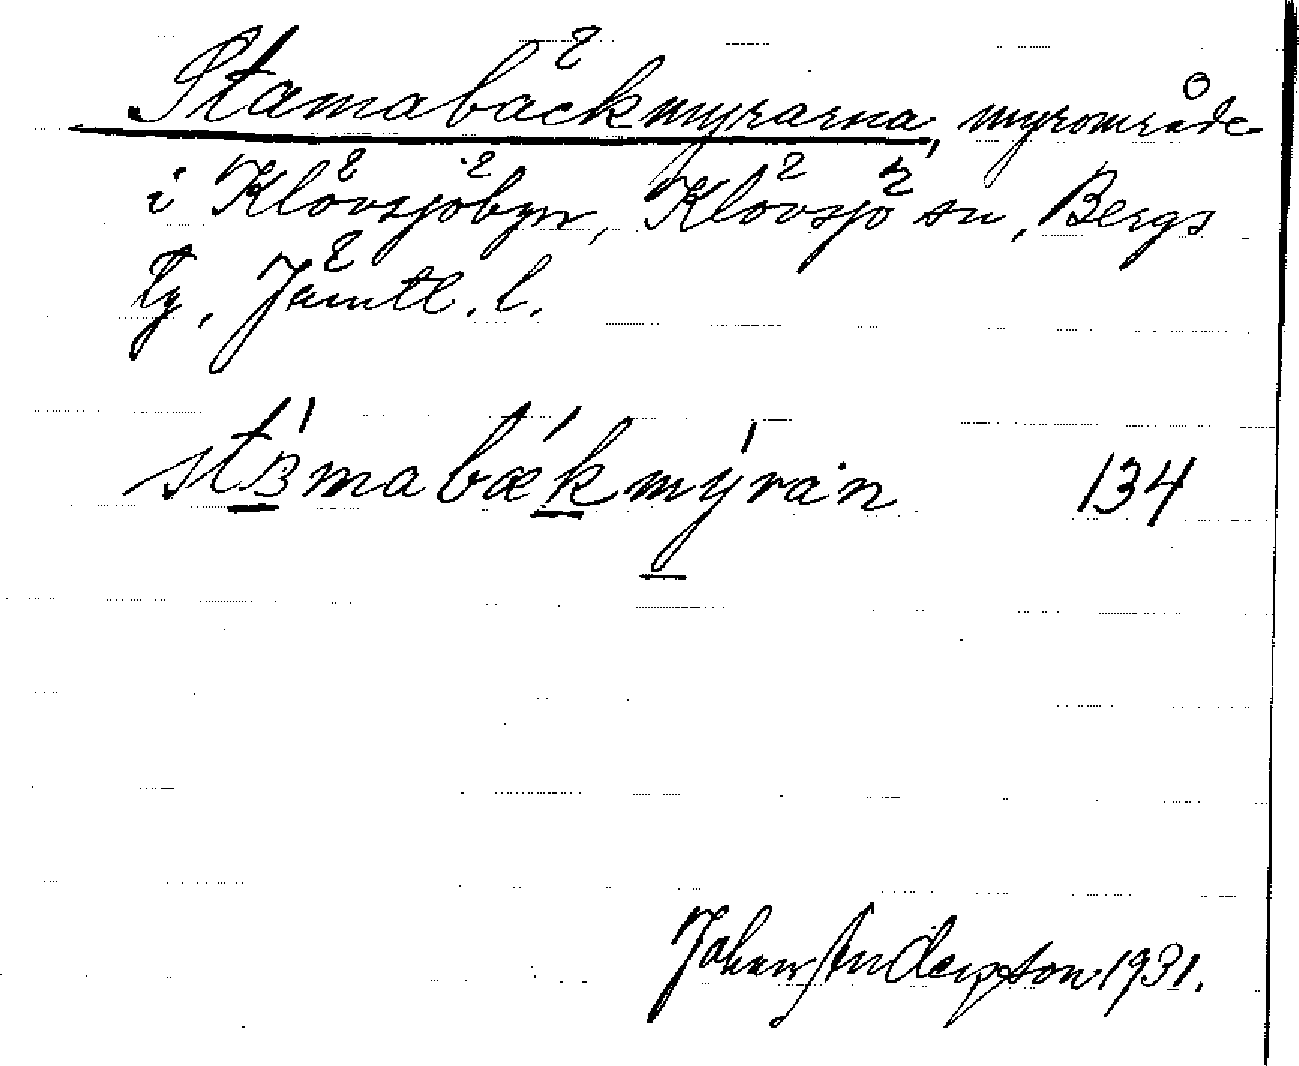 Stamabäckmyrarna, myrområde
i Klövsjöbyn, Klövsjö sn, Bergs
tg, Jämtl. l.
134
Johan Anderson 1931.